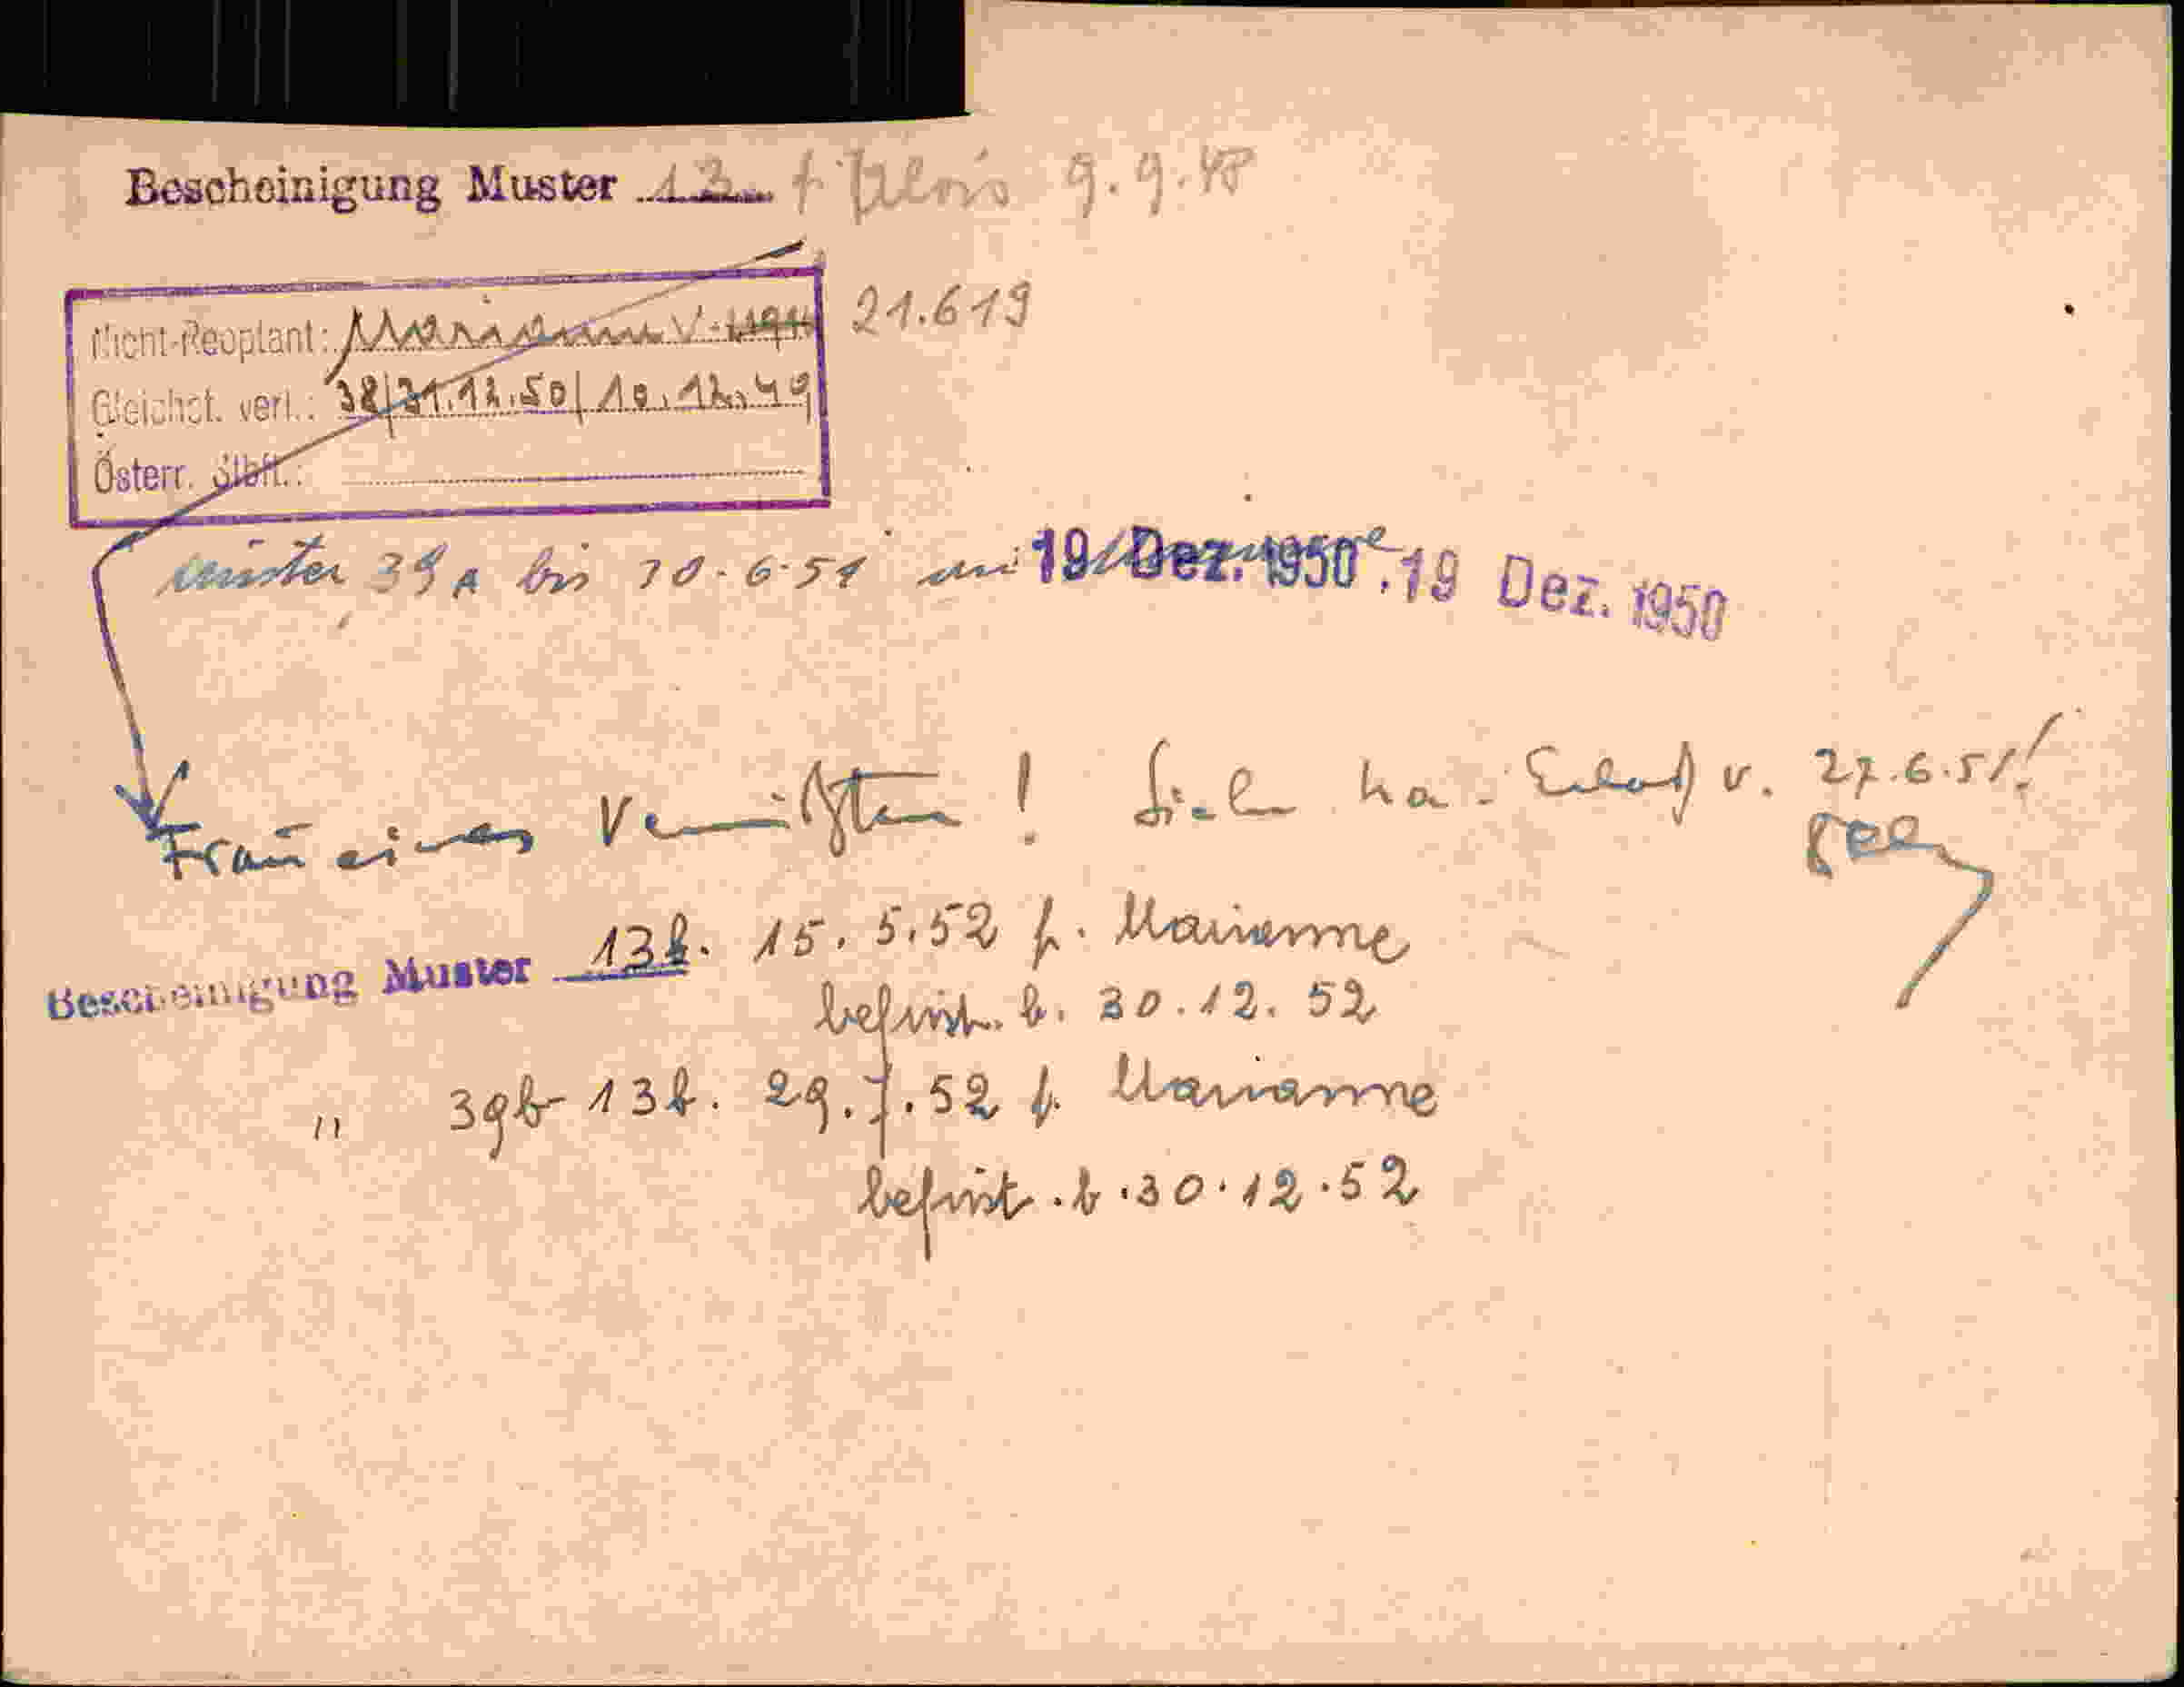 Bescheinigung Muster 13 f. Alois 9.9.48
Nicht-Reoptant: Marianne 21.619
Gleichst. verl.: 38/31.12.50/10.12.49
Österr. Stbft.:
Muster 39 A bis 30.6.51 19 Dez. 1950. 19 Dez. 1950
Frau eines Vermißten! Erlaß v. 27.6.51!
Bescheinigung Muster 13b. 15.5.52 f. Marianne
befrist. b. 30.12.52
" 39b 13b. 29.7.52 f. Marianne
befrist. b. 30.12.52